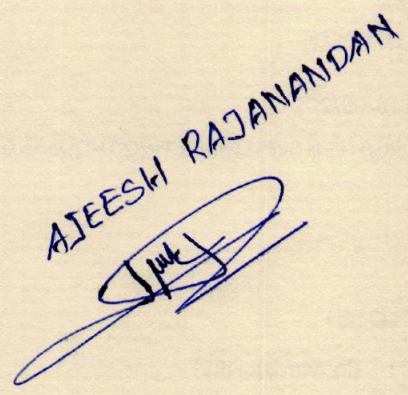 AJEESH RAJANANDAN